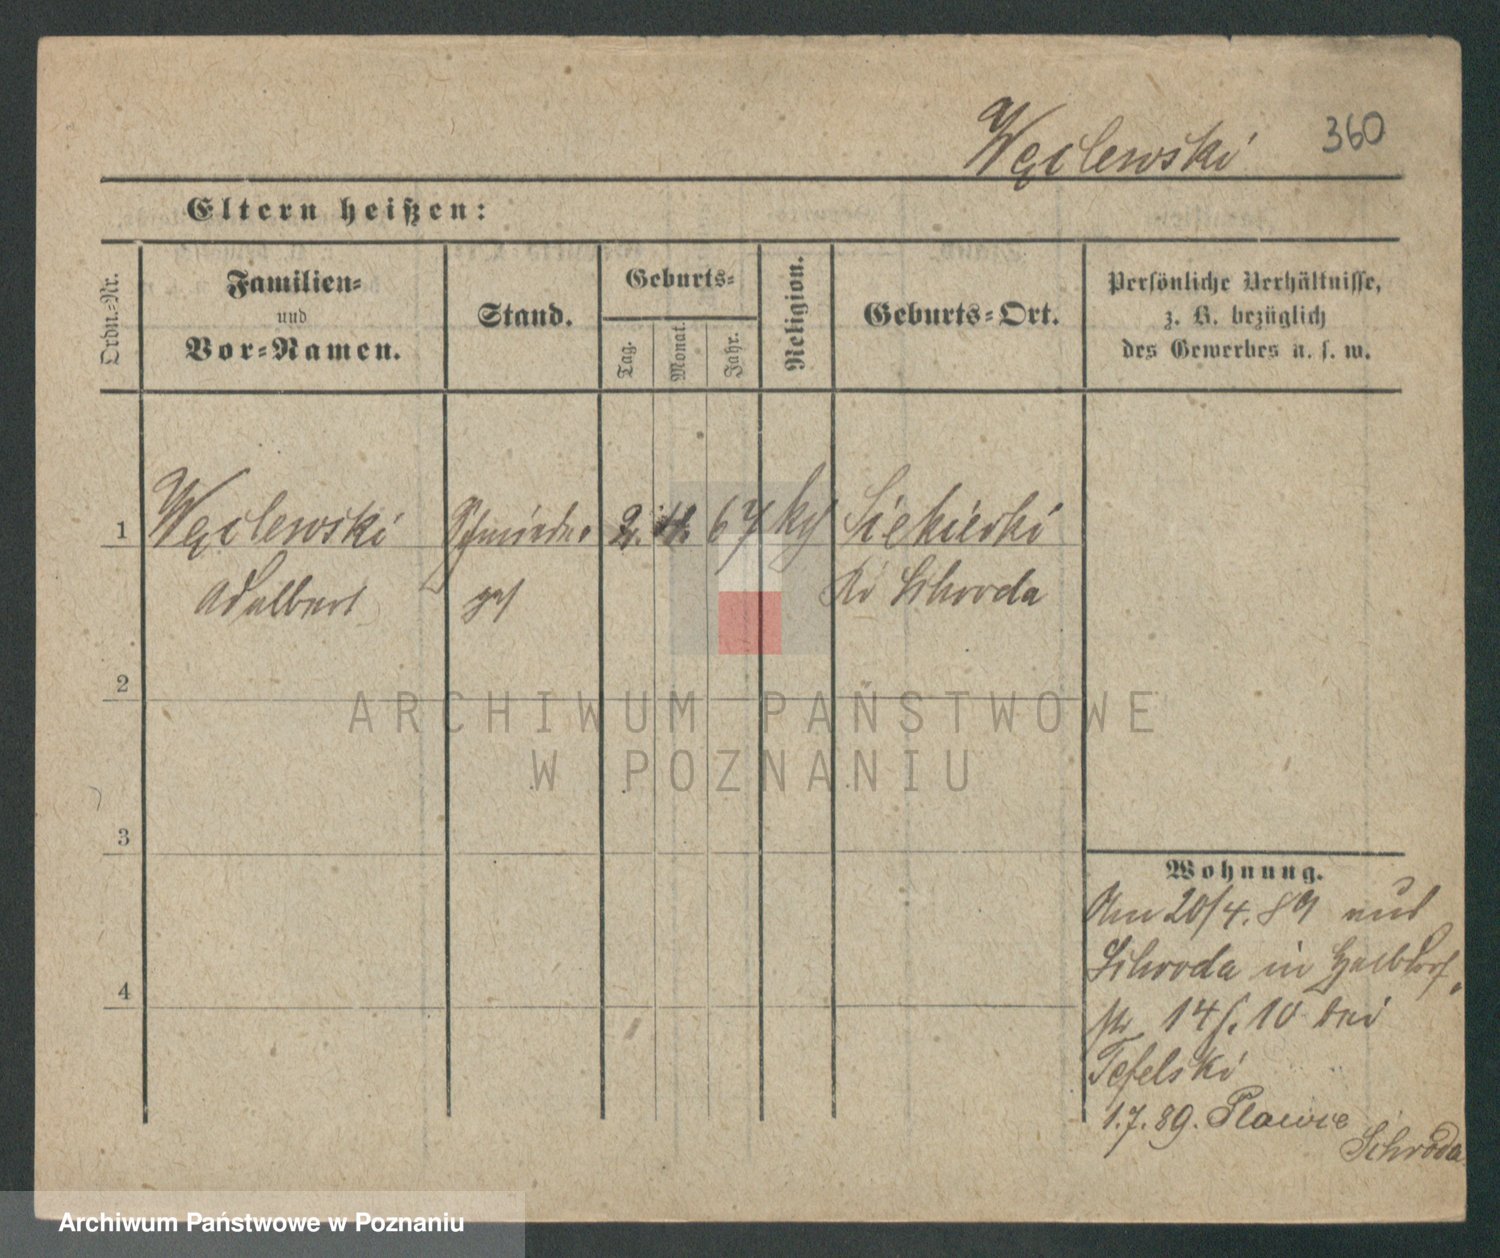 Węclewski 360
Eltern heißen:
Ordn.-Nr.
Familien-
und
Vor-Namen.
Stand.
Geburts-
Tag.
Monat.
Jahr.
Religion.
Geburts-Ort.
Persönliche Verhältnisse,
z. B. bezüglich
des Gewerbes u. s. w.
1 Węclewski Schmiede- 2. 4. 67 kth Siekierki
Adalbert ges Kr Schroda
2
3
4
Wohnung.
Am 20/4. 89 aus
Schroda in Halbdorf-
str 14 b. 10 bei
Tefelski
1.7.89. Plawce
Schroda
ARCHIWUM PAŃSTWOWE
W POZNANIU
Archiwum Państwowe w Poznaniu